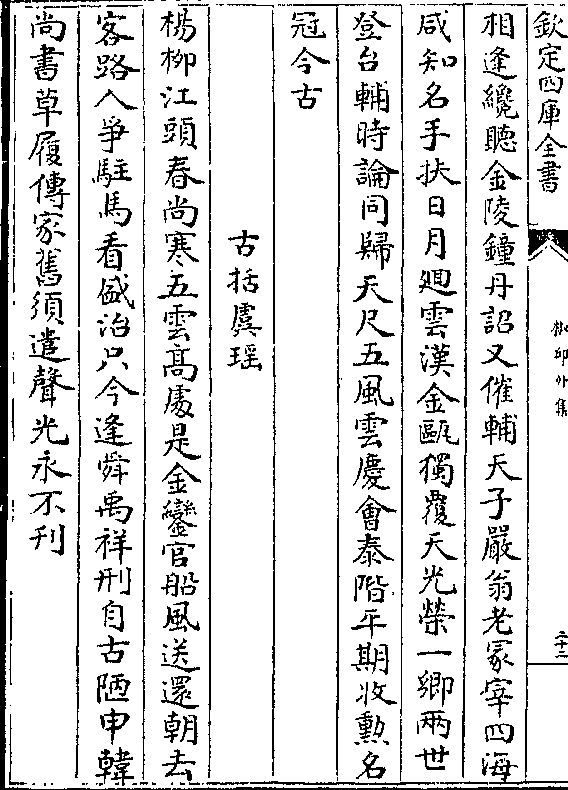 欽定四庫全書
相逢纔聽金陵鐘丹詔又催輔天子嚴翁老冢宰四海
咸知名手扶日月廻雲漢金甌獨覆天光榮一鄉兩世
登台輔時論同歸天尺五風雲慶會泰階平期收勲名
冠今古
古括虞瑶
楊柳江頭春尚寒五雲髙處是金鑾官船風送還朝去
客路人爭駐馬看盛治只今逢舜禹祥刑自古陋申韓
尚書草履傳家舊須遣聲光永不刋